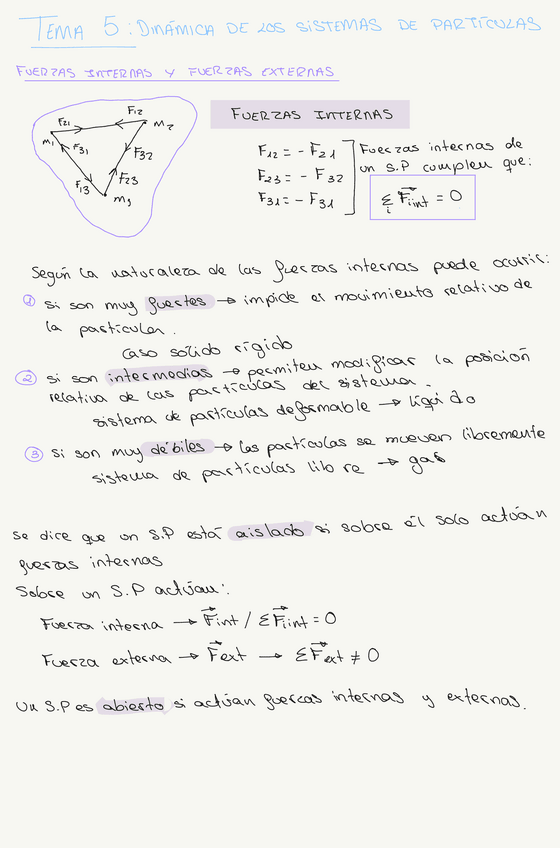 TEMA 5: DINÁMICA DE LOS SISTEMAS DE PARTÍCULAS
FUERZAS INTERNAS Y FUERZAS EXTERNAS
F12
F21
m1
m2
F31
F32
F13
F23
m3
FUERZAS INTERNAS
F12 = - F21
F23 = - F32
F31 = - F31
Fuerzas internas de
un S.P cumplen que:
Σi F⃗iint = 0
Según la naturaleza de las fuerzas internas puede ocurrir:
① si son muy fuertes → impide el movimiento relativo de
la partícula.
caso sólido rígido
② si son intermedias → permiten modificar la posición
relativa de las partículas del sistema.
sistema de partículas deformable → líquido
③ si son muy débiles → las partículas se mueven libremente
sistema de partículas libre → gas
se dice que un S.P está aislado si sobre él solo actúan
fuerzas internas
Sobre un S.P actúan:
Fuerza interna → F⃗int / ΣF⃗iint = 0
Fuerza externa → F⃗ext → ΣF⃗ext ≠ 0
Un S.P es abierto si actúan fuerzas internas y externas.